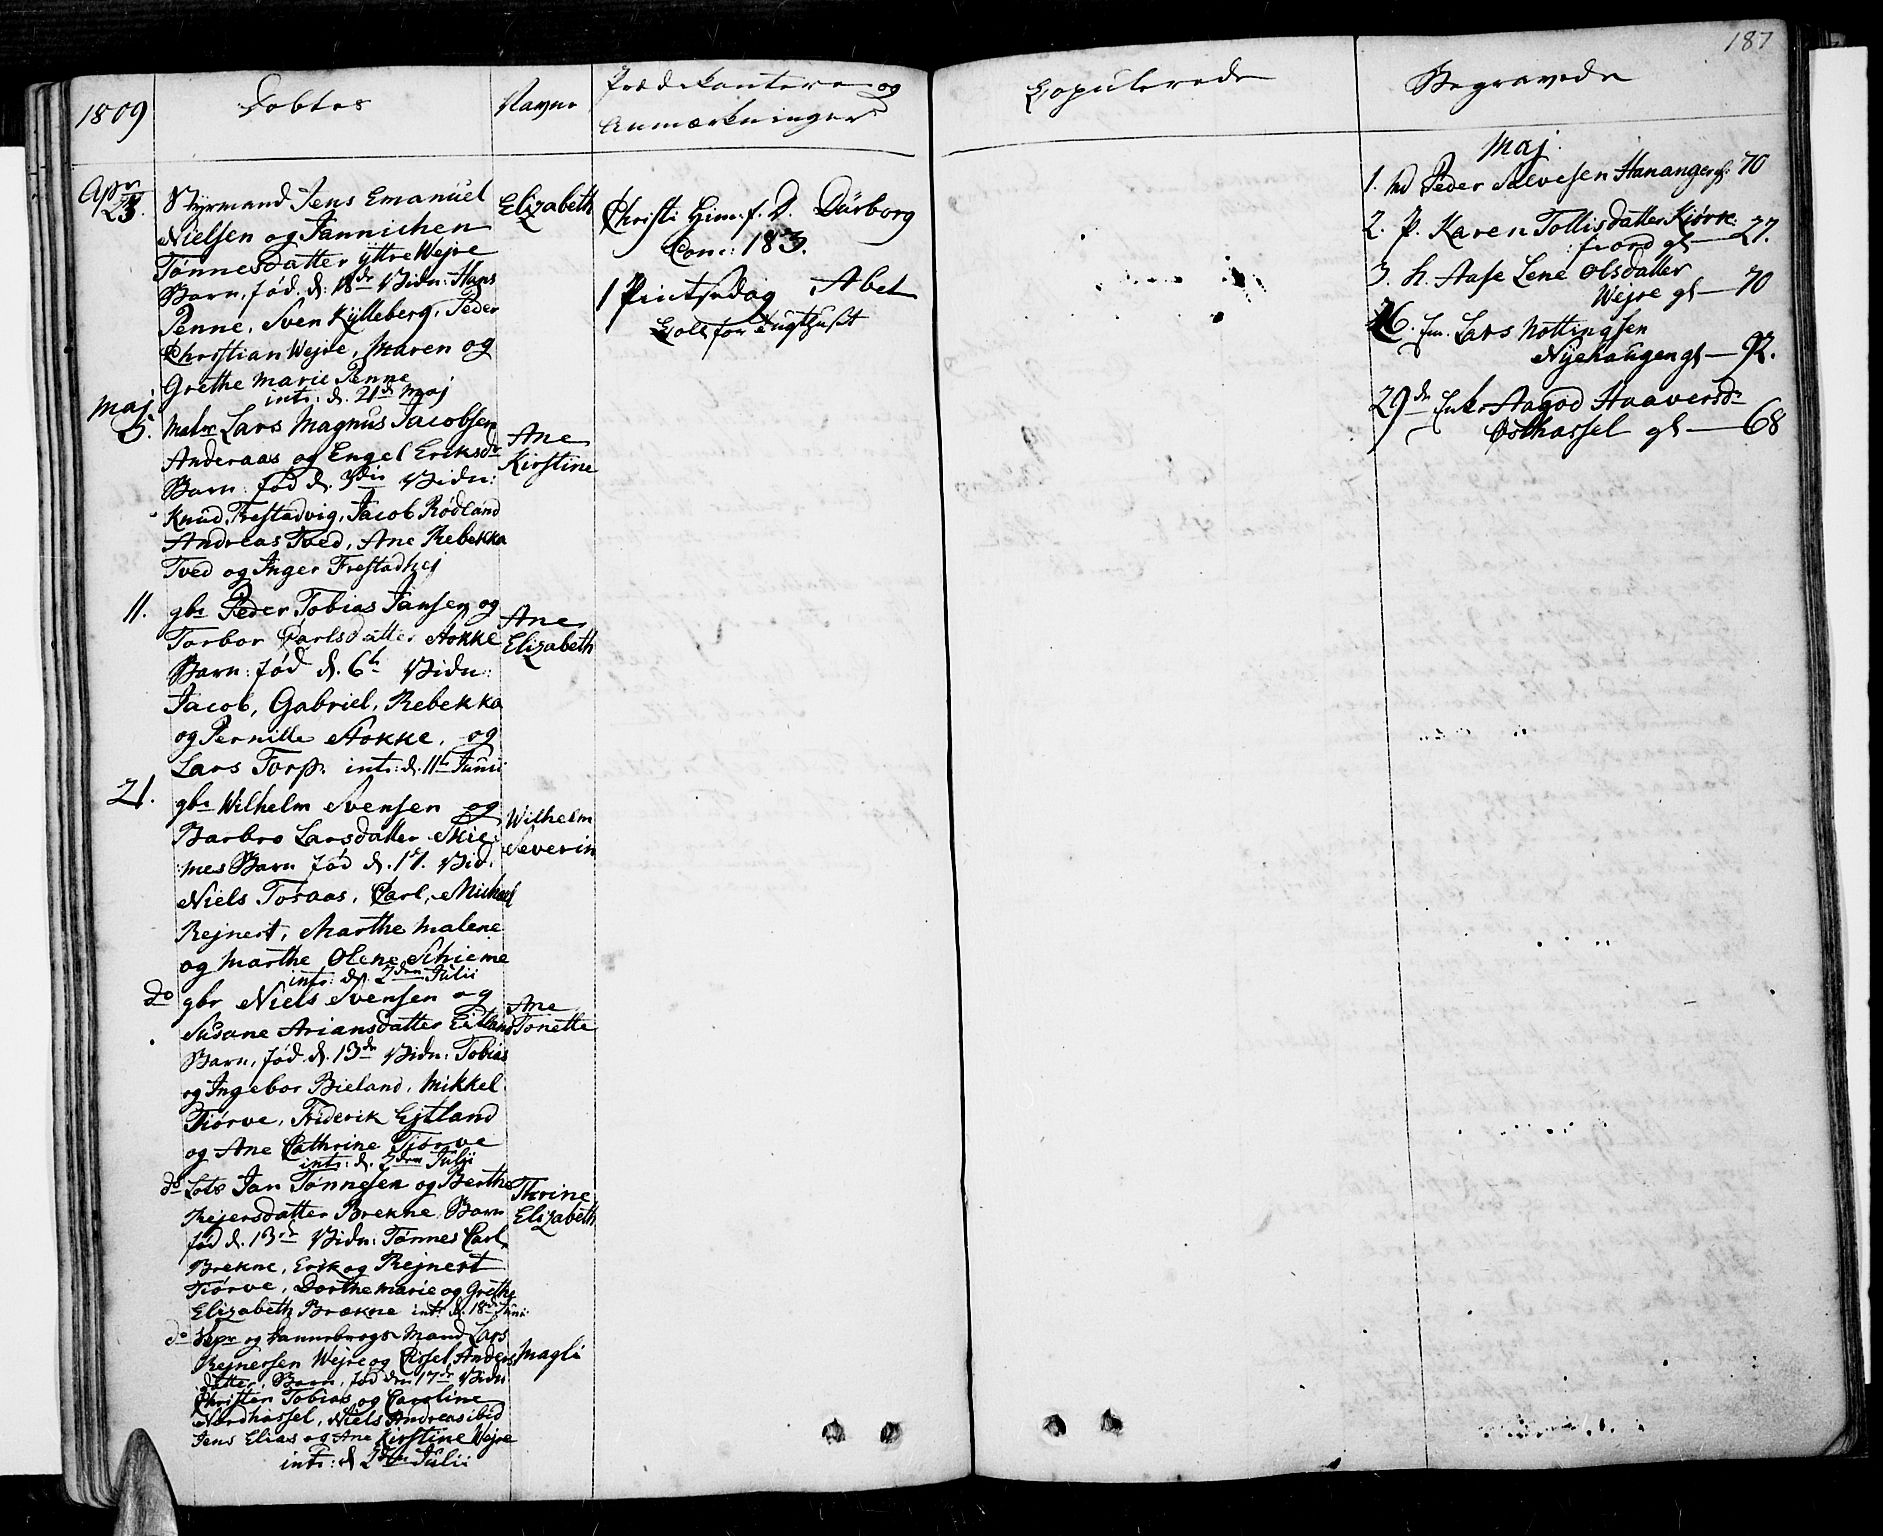 187
1809
Døbtes
Navne
Prædikantere og
Anmærkninger
Copulerede
Begravede
Apr.
23.
Styrmand Jens Emanuel
Nielsen og Jannichen
Tønnesdatter Yttre Wejre
Barn, fød. d: 18de Vidn: Hans
Penne, Sven Kylleberg, Peder
Christian Wejre, Maren og
Grethe Marie Penne
intr: d. 21de Maj
Elizabeth
Maj
5.
Matr Lars Magnus Jacobsen
Anderaas og Engel Eriksdr
Barn: fød d. 3die Vidn:
Knud Frestadvig, Jacob Rødland
Andreas Tved, Ane Rebekka
Tved og Inger Frestadhej
Ane
Kirstine
11.
gbr Peder Tobias Jansen og
Torbor Carlsdatter Stokke
Barn: fød d. 6te Vidn:
Jacob, Gabriel, Rebekka
og Pernille Stokke, og
Lars Torp. intr: d. 11te Junii
Ane
Elizabeth
21.
gbr Wilhelm Svensen og
Barbro Larsdatter Skie:
mes Barn fød d. 17. Vid.
Niels Toraas, Carl, Michael
Rejnert, Marthe Malene
og Marthe Olene Schieme
intr: d. 2den Julii
Wilhelm
Severin
do
gbr Niels Svensen og
Susane Ariansdatter Eitland
Barn, fød. d. 13de Vidn: Tobias
og Ingebor Bieland, Mikkel
Tiørve, Friderik Ejtland
og Ane Cathrine Tjørve
intr: d. 2den Julii
Ane
Tonette
do
Lots Jan Tønnesen og Berthe
Rejersdatter Brekne Barn
fød d. 13de Vidn: Tønnes Carl
Brekne, Erik og Rejnert
Tiørve, Dorthe Marie og Grethe
Elizabeth Brækne intr: d. 18de Juni
Thrine
Elizabeth
do
og Dannebrogs Mand Lars
Rejnersen Wejre og Cissel Anders
datter, Barn, fød den 17de Vidn
Christen Tobias og Caroline
Nordhassel, Niels Andreas ibid
Jens Elias og Ane Kirstine Wejre
intr: d 2den Julii
Magli
Christi Him: f. D. Dürborg
Conc: 183.
1 Pintsedag Abel
Coll for Tugthuset
Maj.
1. Peder Salvesen Hananger gl: 70
2. P. Karen Tollisdatter Kiørre:
:fiord gl — 27.
3. h. Aase Lene Olsdatter
Wejre gl — 70
26. Em. Lars Nottingsen
Nyehaugen gl — 92.
29de Enke Aagod Haaversdr
Østhassel gl — 68